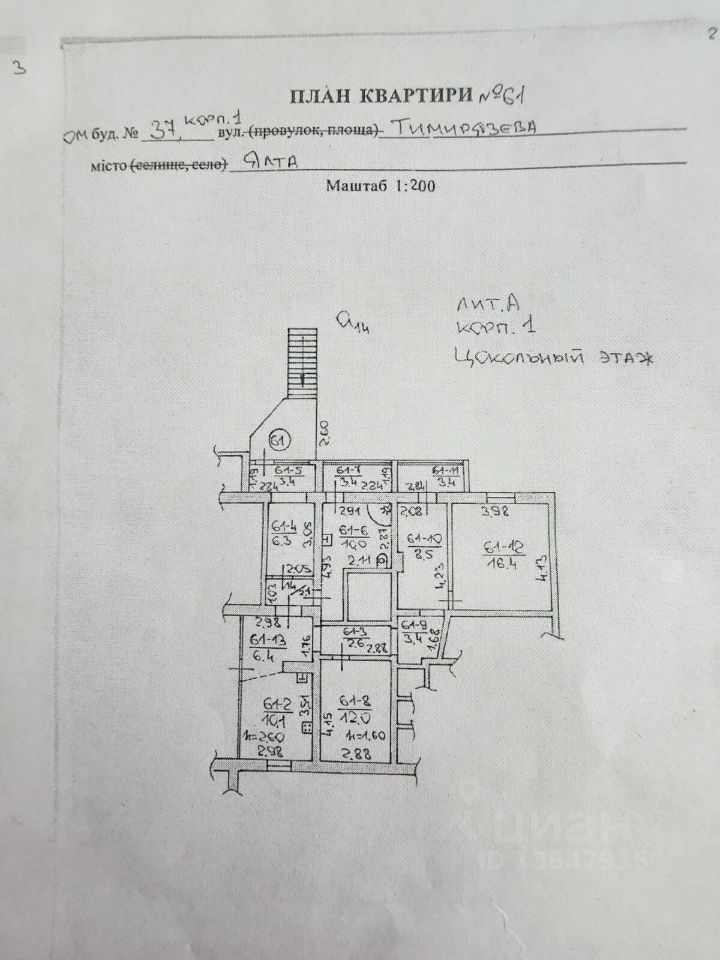 2
3
ПЛАН КВАРТИРИ №61
буд. № 37, корп.1 вул. (провулок, площа) Тимирязева
місто (селище, село) Ялта
Маштаб 1:200
а14
лит.А
корп. 1
Цокольный этаж
61
2.60
1.19
61-5
3.4
2.84
61-7
3.4
2.84
1.19
61-11
3.4
2.84
61-4
6.3
3.05
2.05
2.91
61-6
10,0
2.87
2.11
4.93
2.08
61-10
8,5
4.23
3.98
61-12
16.4
4.13
1.03
1.4
2.98
61-13
6.4
1.76
61-3
2.6
2.88
61-9
3,4
1.68
61-2
10,1
3.51
h=2.60
2.98
61-8
12.0
4.15
h=1.60
2.88
циан